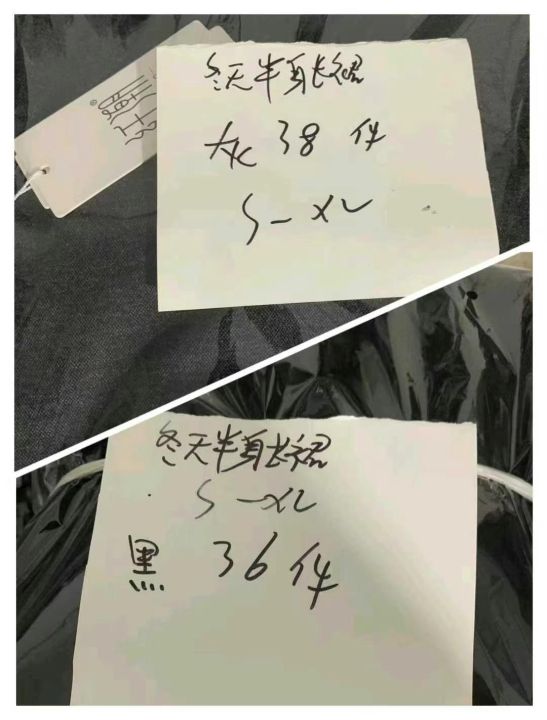 冬天半身长裙
灰 38 件
S-XL
冬天半身长裙
S-XL
黑 36 件